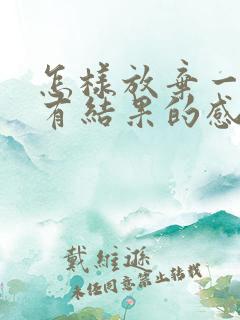 怎樣放棄一
有結果的感
戴維遜
未经同意禁止转载